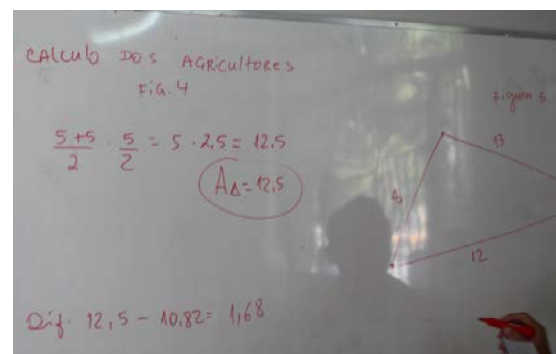 CALCULO DOS AGRICULTORES
FIG. 4
Figura 5
5+5/2 · 5/2 = 5 · 2,5 = 12,5
A△ = 12,5
13
12
Dif. 12,5 - 10,82 = 1,68